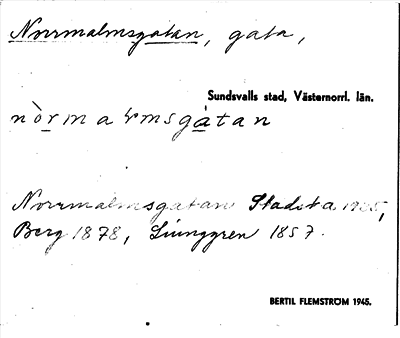 Norrmalmsgatan, gata,
Sundsvalls stad, Västernorrl. län.
Norrmalmsgatan Stadska 1935,
Berg 1878, Ljunggren 1857.
BERTIL FLEMSTRÖM 1945.